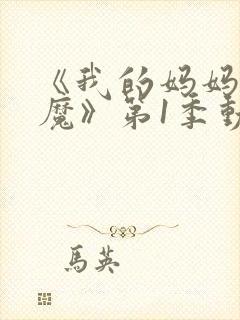 《我的妈妈
魔》第1季動
馬英